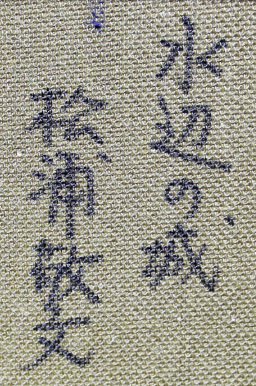 水辺の城
松浦敏文